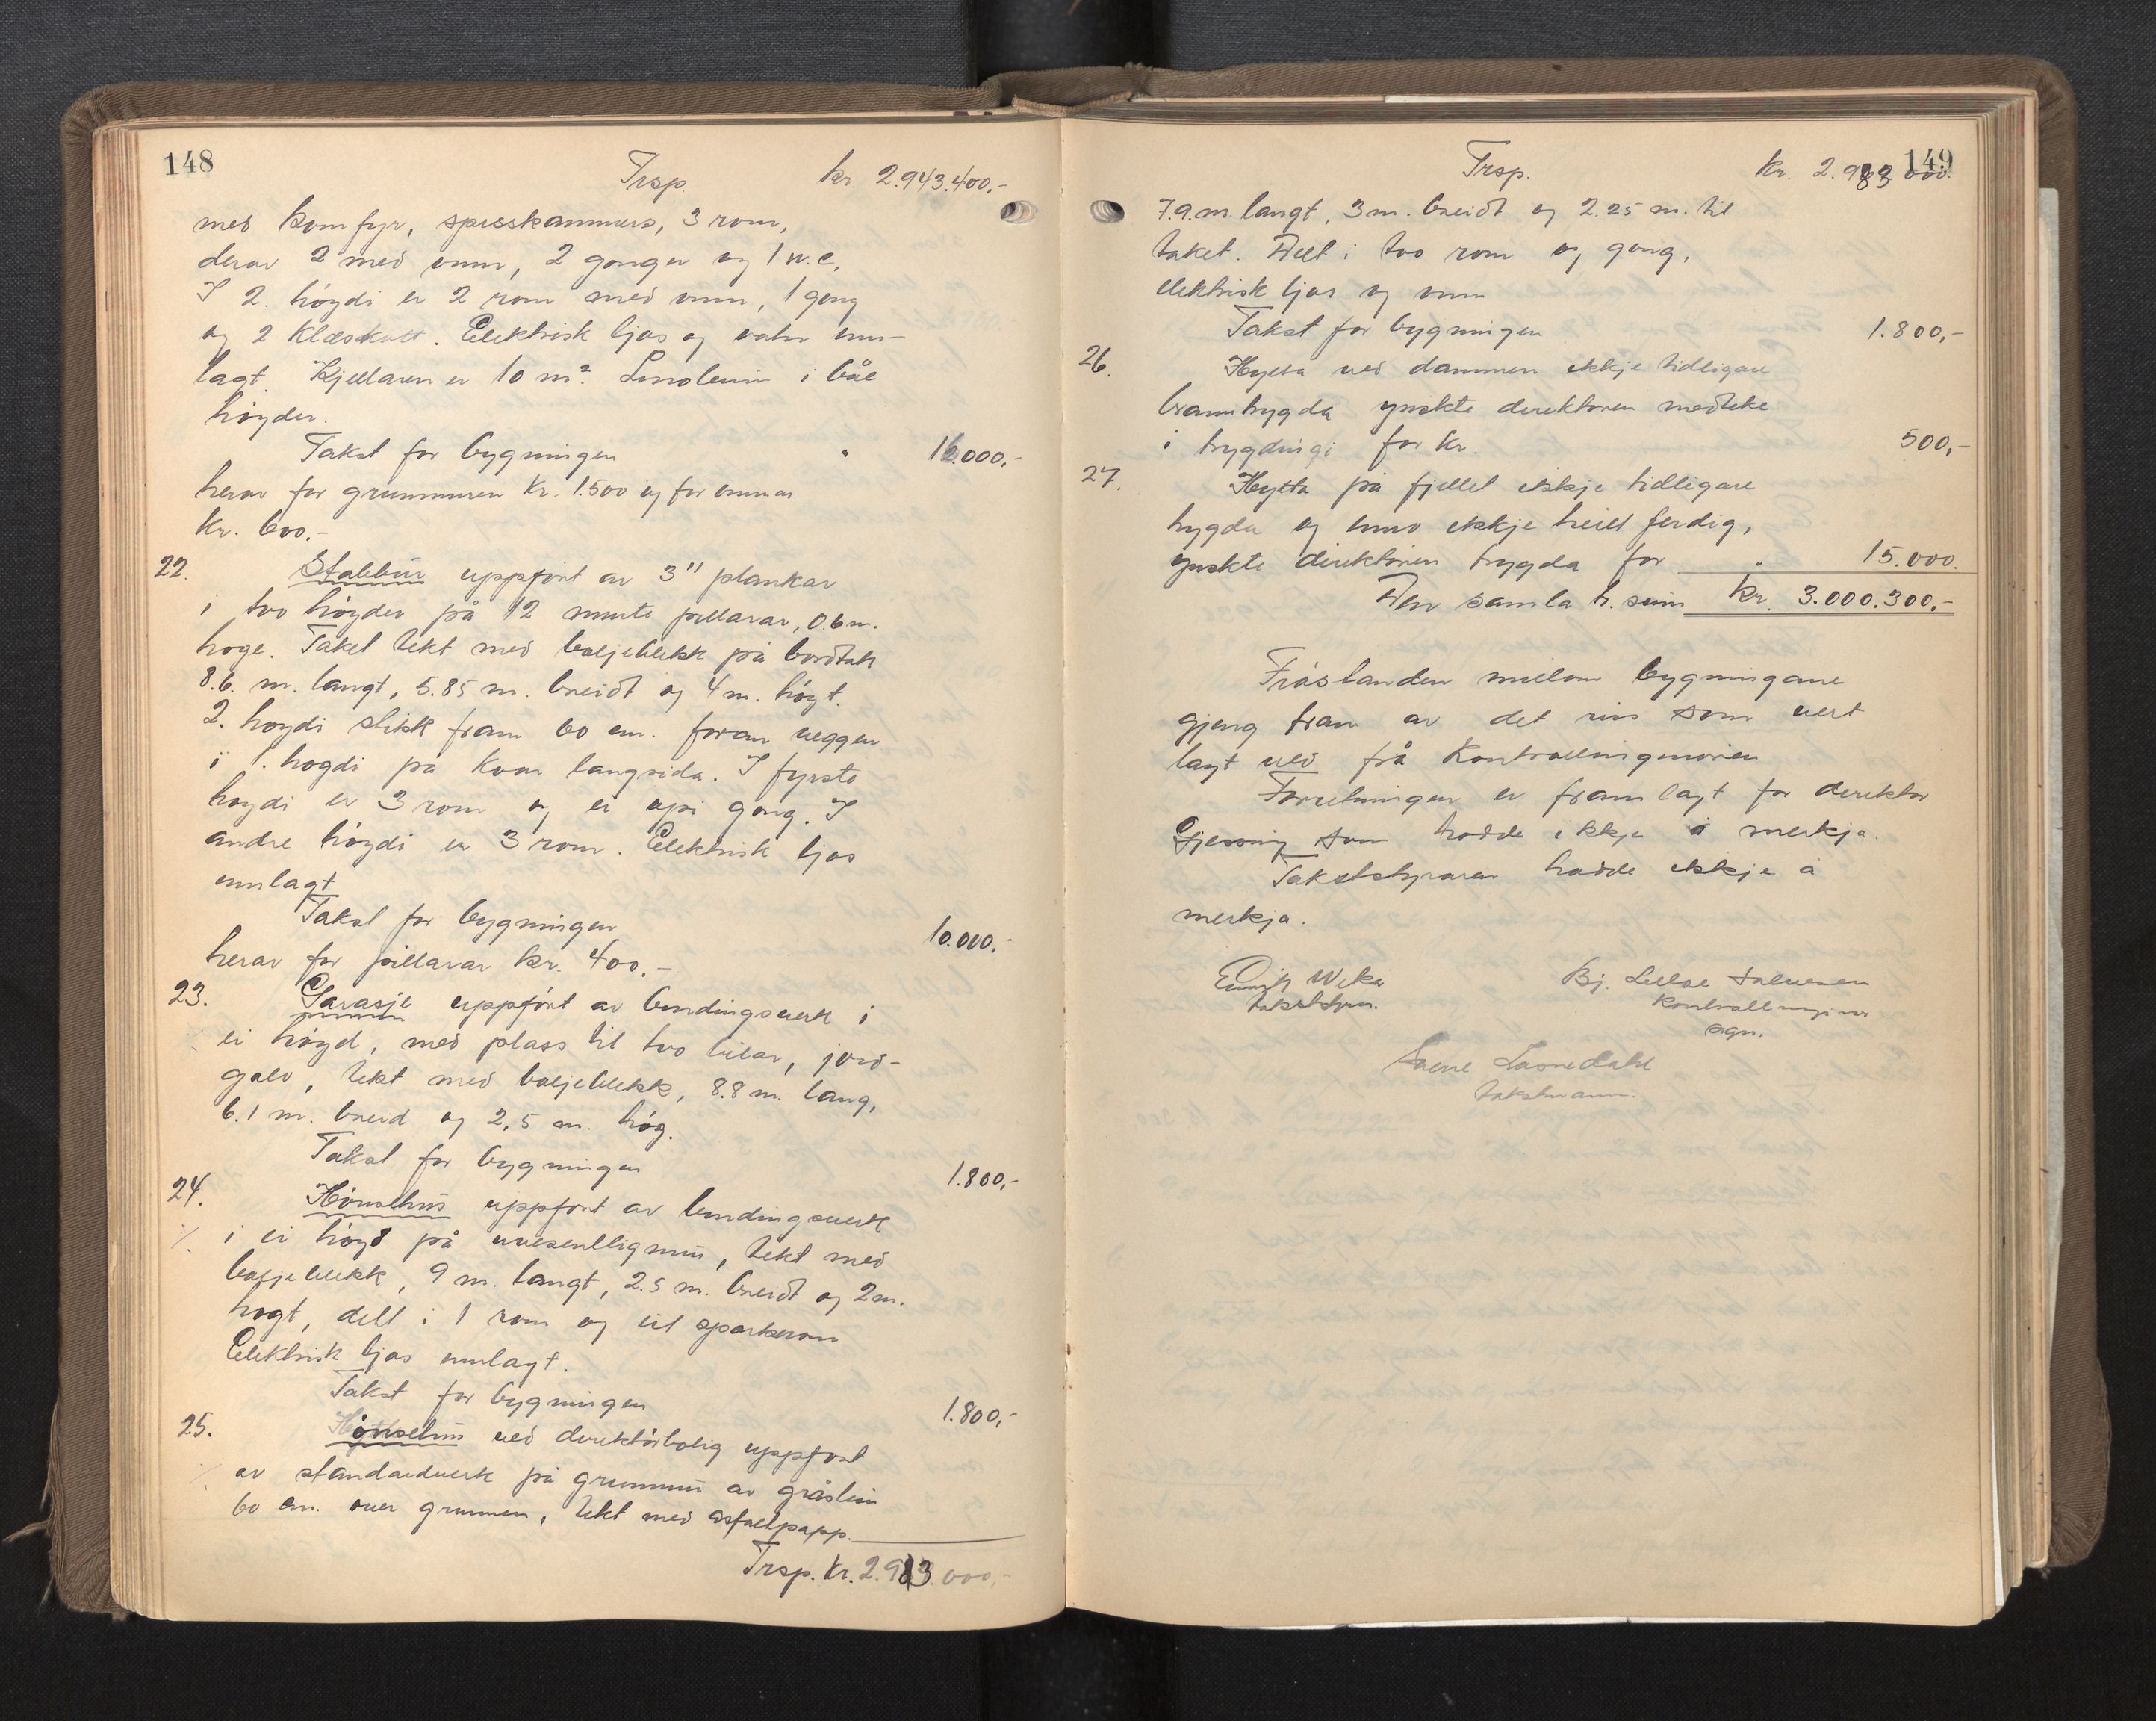 148
Trsp. kr. 2.943.400,-
med komfyr, spisskammers, 3 rom,
derav 2 med omn, 2 gonger og 1 w.c.
I 2. høgdi er 2 rom med omn, 1 gong
og 2 klæskott. Elektrisk ljos og vatn inn-
lagt. Kjellaren er 10 m². Linoleum i båe
høgder.
Takst for bygningen " 16.000,-
herav for grunnmuren kr. 1.500 og for omnar
kr. 600.-
22. Stabbur uppført av 3" plankar
i two høgder på 12 murte pillarar, 0.6 m.
høge. Taket tekt med bøljeblekk på bordtak
8.6. m. langt, 5.85 m. breidt og 4 m. høgt.
2. høgdi stikk fram 60 cm. foran veggen
i 1. høgdi på kvar langsida. I fyrste
høgdi er 3 rom og ei opi gong. I
andre høgdi er 3 rom. Elektrisk ljos
innlagt
Takst for bygningen 10.000.-
herav for pillarar kr. 400.-
23. Garasje uppført av bindingsverk i
ei høgd, med plass til two bilar, jord-
golv, tekt med bøljeblekk, 8.8 m. lang,
6.1 m. breid og 2,5 m. høg.
Takst for bygningen 1.800,-
24. Hönsehus uppført av bindingsverk
i ei høgd på uvesentlig mur, tekt med
bøljeblekk, 9 m. langt, 2.5 m. breidt og 2 m.
høgt, delt i 1 rom og eit sparkerom
Elektrisk ljos innlagt.
Takst for bygningen 1.800,-
25. Hönsehus ved direktörbolig uppført
av standardverk på grunnmur av gråstein
60 cm. over grunnen, tekt med asfaltpapp.
Trsp. kr. 2.983.000,-
149
Trsp. kr. 2.983.000.
7.9. m. langt, 3 m. breidt og 2.25 m. til
taket. Delt i two rom og gong,
elektrisk ljos og omn
Takst for bygningen 1.800,-
26. Hytta ved dammen ikkje tidligare
branntrygda ynskte direktøren medteke
i trygdingi for kr. 500,-
27. Hytta på fjellet ikkje tidligare
trygda og enno ikkje heilt ferdig,
ynskte direktøren trygda for " 15.000.
Den samla tr. sum kr. 3.000.300,-
Fråstanden millom bygningane
gjeng fram av det riss som vert
lagt ved frå kontrollingeniøren
Forretningen er framlagt for direktør
Gjessing som hadde ikkje å merkja.
Takststyraren hadde ikkje å
merkja.
takststyrar. Bj.
kontrollingeniør
sign.
takstmann.